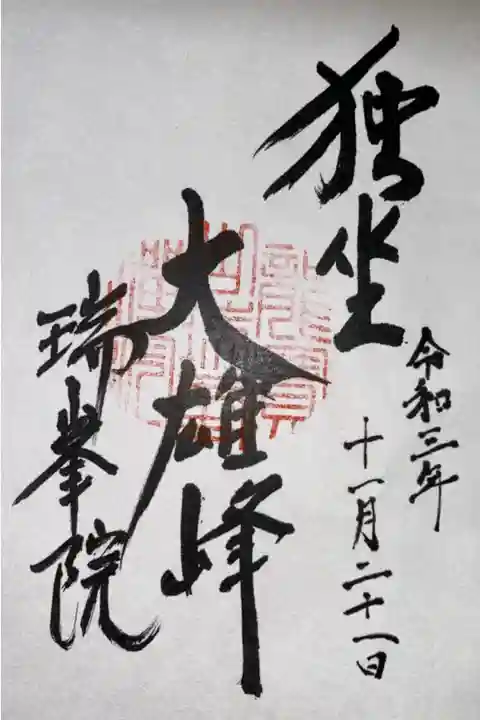 独坐
大雄峰
瑞峯院
令和三年
十一月二十一日